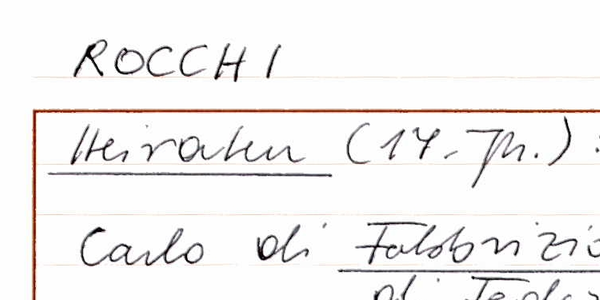 ROCCHI
Heiraten (17. Jh.) :
Carlo di Fabbrizio
di